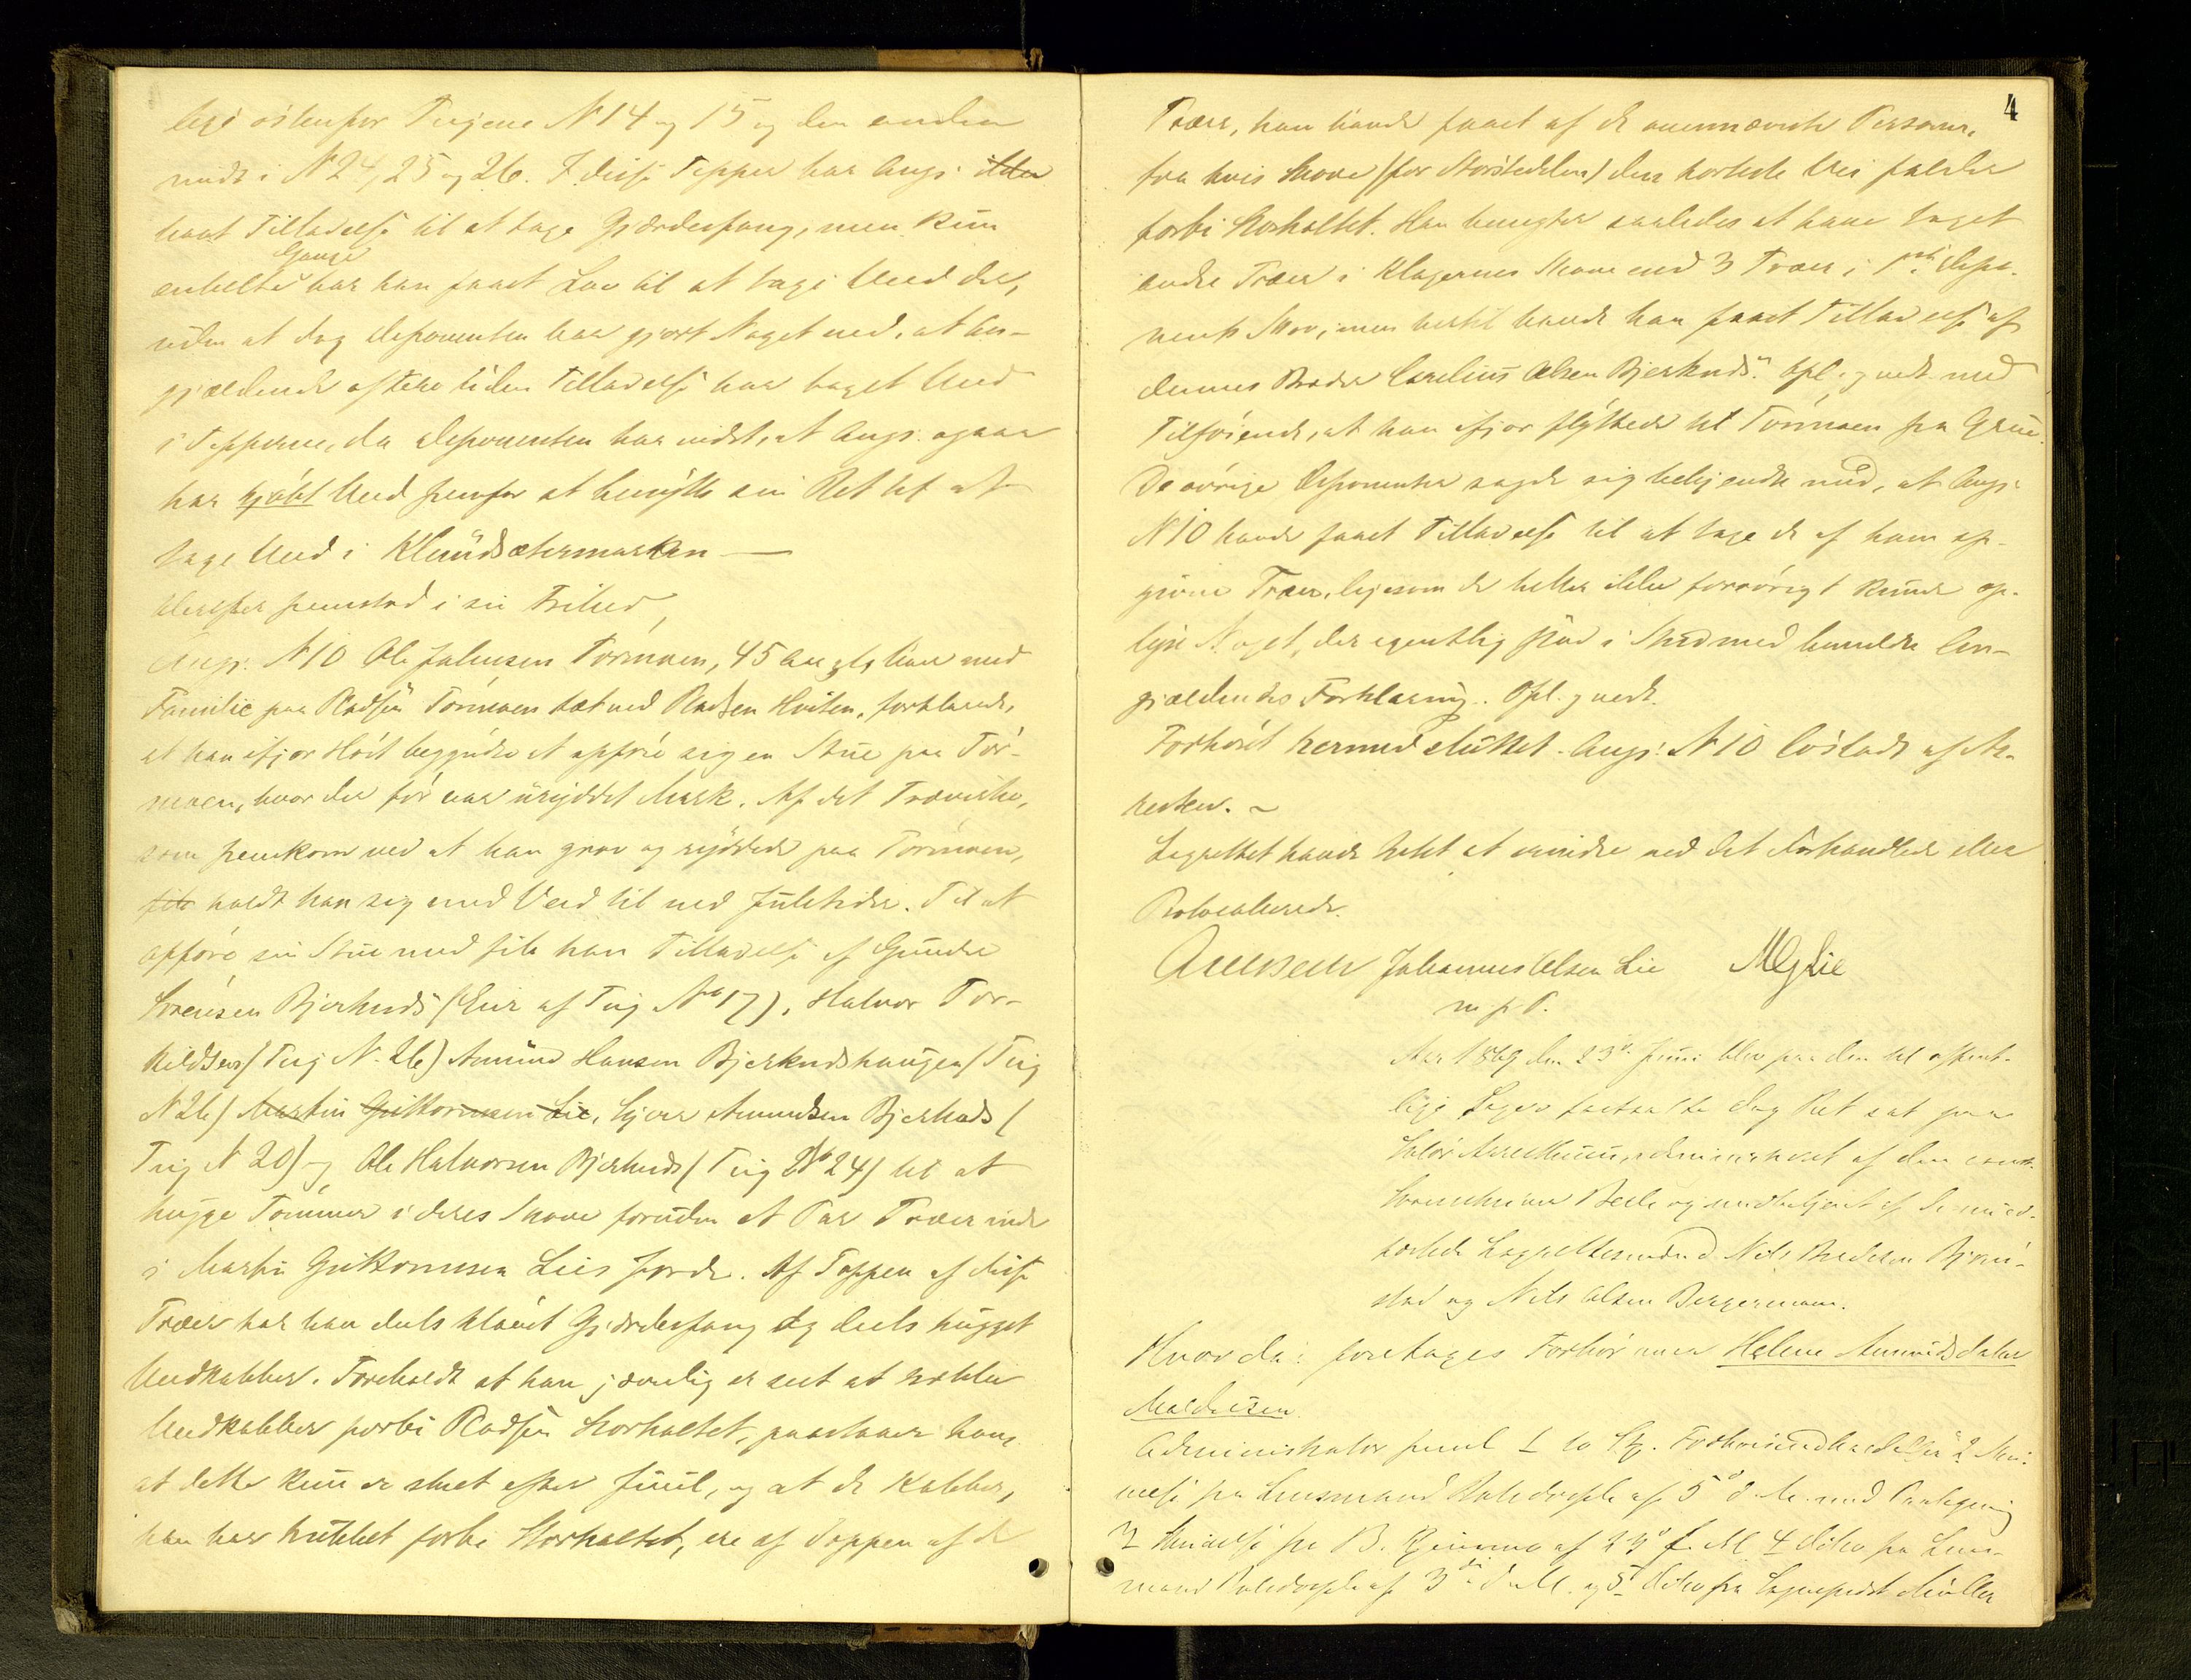 lige østenfor Teigene N 14 og 15 og den anden
midt i N 24, 25 og 26. I disse Tepper har Angj.
havt Tilladelse til at tage Gjærdesfang, men kun
Gange
enkelte har han faaet Lov til at tage Ved der,
uden at dog Deponenten har gjort Noget ved, at An-
gjældende oftere uden Tilladelse har taget Ved
i Tepperne, da Deponenten har vidst, at Angj. ogsaa
har kjøbt Ved fremfor at benytte sin Ret til at
tage Ved i Klundsætermarken —
Derefter fremstod i sin Frihed,
Angj: N 10 Ole Johnsen Tørmoen, 45 Aar gl, boer med
Familie paa Pladsen Tørmoen tæt ved Pladsen Hviten, forklarede,
at han ifjor Høst begyndte at opføre sig en Stue paa Tør-
moen, hvor der før var uryddet Mark. Af det Trævirke,
som fremkom ved at han grov og ryddede paa Tørmoen,
holdt han sig med Ved til ved Juletider. Til at
opføre sin Stue med fik han Tilladelse af Gunder
Sørensen Bjerknds (Eier af Teig No 17), Halvor Tor-
kildsen (Teig N. 26) Amund Hansen Bjerkndshaugen (Teig
N 26) Martin Guttormsen Lie, Syver Amundsen Bjerknds (
Teig N 20) og Ole Halvorsen Bjerknds (Teig No 24) til at
hugge Tømmer i deres Skove foruden et Par Træer inde
i Martin Guttormsen Lies Jorde. Af Toppen af disse
Træer har han dels kløvet Gjærdesfang og dels hugget
Vedkabber. Foreholdt at han jævnlig er seet at
Vedkabber forbi Pladsen Storholtet, paastaaer han,
at dette kun er skeet efter Juul, og at de Kabber,
han har trukket forbi Storholtet, ere af Toppen af de
4
Træer, han havde faaet af de ovennævnte Personer,
fra hvis Skove (for Størstedelen) den korteste Vei falder
forbi Storholtet. Han benegter saaledes at have taget
andre Træer i Klagernes Skove end 3 Træer i 1ste Depo-
nents Skov, men hertil havde han faaet Tilladelse af
dennes Broder Carelius Olsen Bjerknds. Opl. g vedt. med
Tilføiende, at han ifjor flyttede til Tørmoen fra Grue.
De øvrige Deponenter sagde sig bekjendte med, at Angj.
N 10 havde faaet Tilladelse til at tage de af ham op-
givne Træer, ligesom de heller ikke forøvrigt kunde op-
lyse Noget, der egentlig stod i Strid med bemeldte An-
gjældendes Forklaring. Opl. g vedt.
Forhøret hermed sluttet. Angj: N 10 løslodes af Ar-
resten. ~
Lagrettet havde Intet at erindre ved det Forhandlede eller
Protocollerede.
Johannes Olsen Lie MGLie
m. p. P.
Aar 1869 den 23de Juni blev paa den til offent-
lige Sagers fastsatte dag Ret sat paa
Solør Arresthuus, administreret af den const.
Sorenskriver og medbetjent af de
Lagrettesmænd Nils
stad og Nils Olsen Bergermoen.
Hvor da: foretages Forhør over Helene Amundsdatter
Administrator freml. 1
fra Lensmand af 5te d. M. med Paategning
3 Skrivelse fra B. af 29de f. M. 4 ditto fra Lens-
mand af 3die d. M. og 5 ditto fra Møller